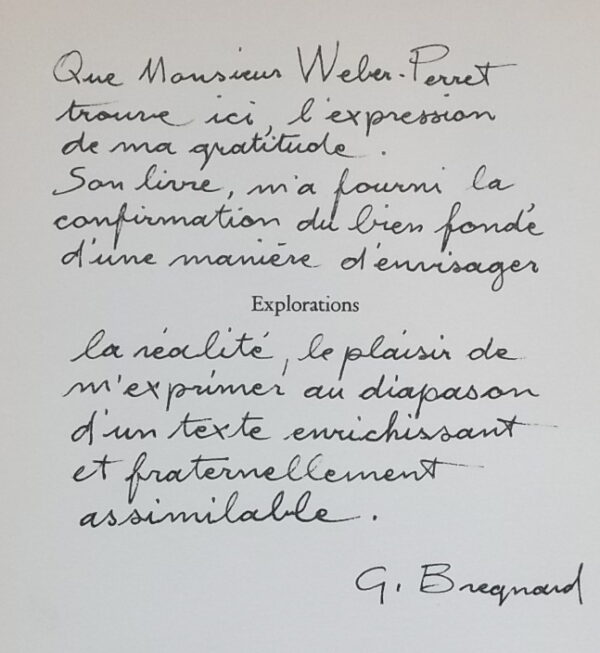 Que Monsieur Weber-Perret
trouve ici, l'expression
de ma gratitude.
Son livre, m'a fourni la
confirmation du bien fondé
d'une manière d'envisager
Explorations
la réalité, le plaisir de
m'exprimer au diapason
d'un texte enrichissant
et fraternellement
assimilable.
G. Bregnard